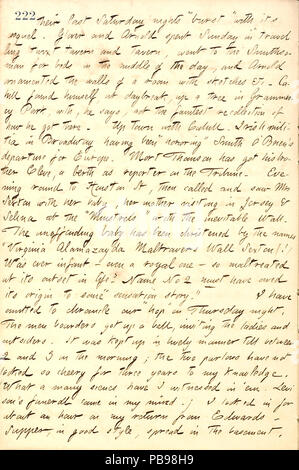 222
their last Saturday night's "burst" with its
sequel. Glover and Arnold spent Sunday in travel
ling twixt taverns and tavern, went to the Smithso-
man for beds in the middle of the day, and Arnold
ornamented the walls of a room with sketches &c. Ca-
hill found himself at daybreak, up a tree in Grammer-
cy Park, with, he says, not the faintest recollection of
how he got there. Up town with Cahill. Irish mili-
tia in Broadway having been honoring Smith O'Brien's
departure for Europe. Mort Thomson has got his bro-
ther Clif, a berth as reporter on the Tribune. Eve-
ning round to Houston St, then called and saw Mrs
Sexton with her baby, her mother visiting in Jersey &
Selina at the "Minstrels" with the inevitable Wall.
The unoffending baby has been christened by the names
Virginia Alamazayda Maltravers Wall Sexton!!
Was ever infant — even a royal one — so maltreated
at its outset in life? Name No 2 must have owed
its origin to some sensation story. I have
omitted to chronicle our hop on Thursday night.
The men boarders got up a ball, inviting the ladies and
outsiders. It was kept up in lively manner till between
2 and 3 in the morning; the two parlors have not
looked so cheery for three years to my knowledge.
What a many scenes have I witnessed in 'em. Levi-
son's funeral came in my mind! I looked in for
about an hour on my return from Edwards'.
Supper, in good style, spread in the basement.
alamy
PB98H9